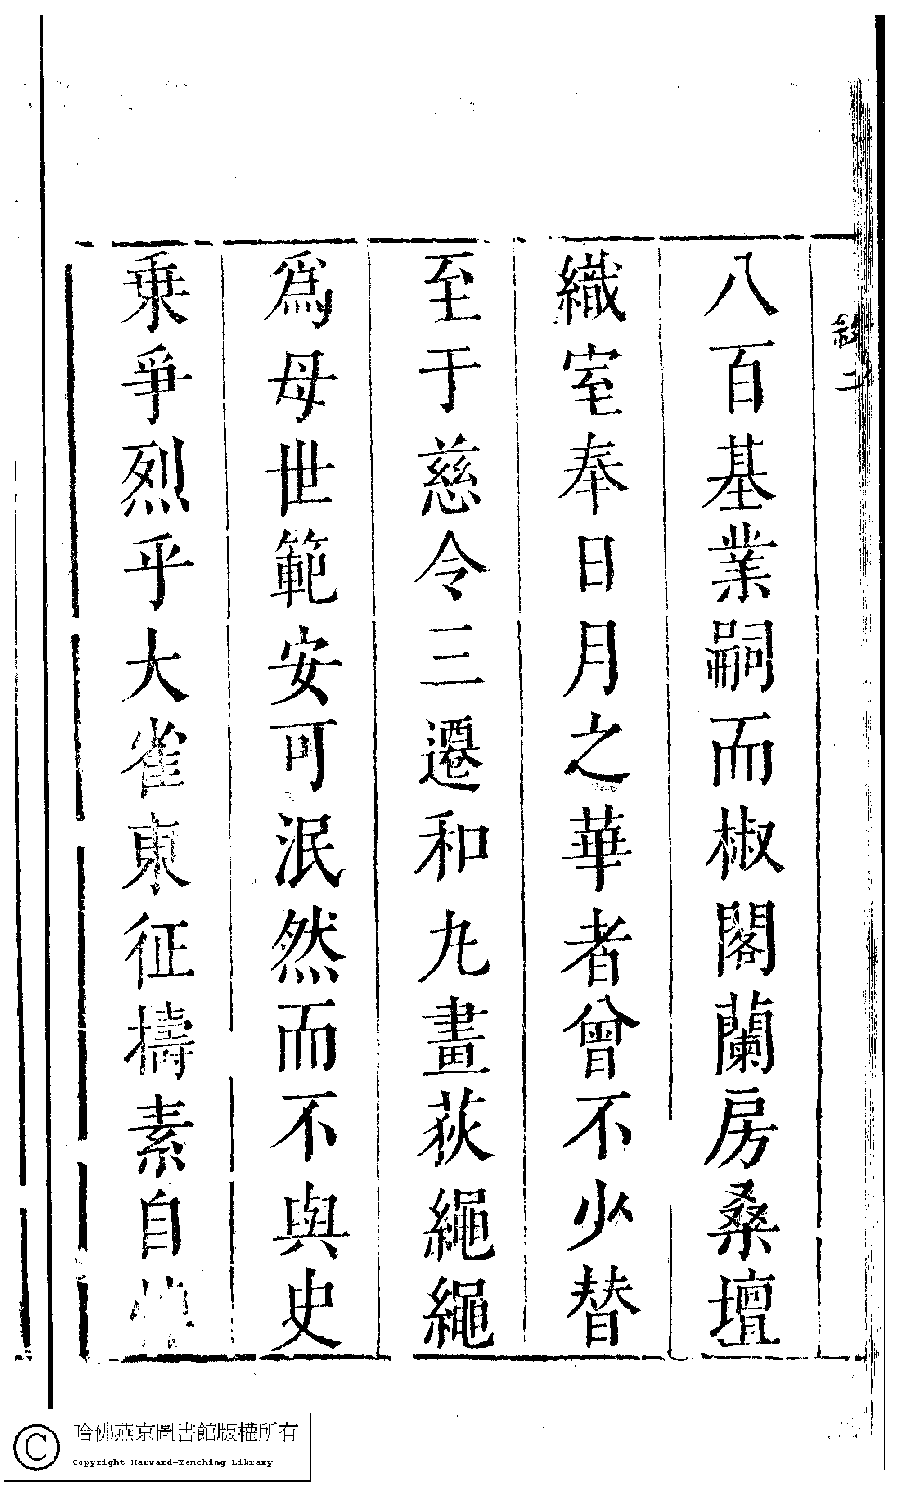 敘二
八百基業嗣而椒閣蘭房桑壇
織室奉日月之華者曾不少替
至于慈令三遷和九畫荻繩繩
為母世範安可泯然而不與史
乘爭烈乎大雀東征擣素自
哈佛燕京圖書館版權所有
Copyright Harvard-Yenching Library